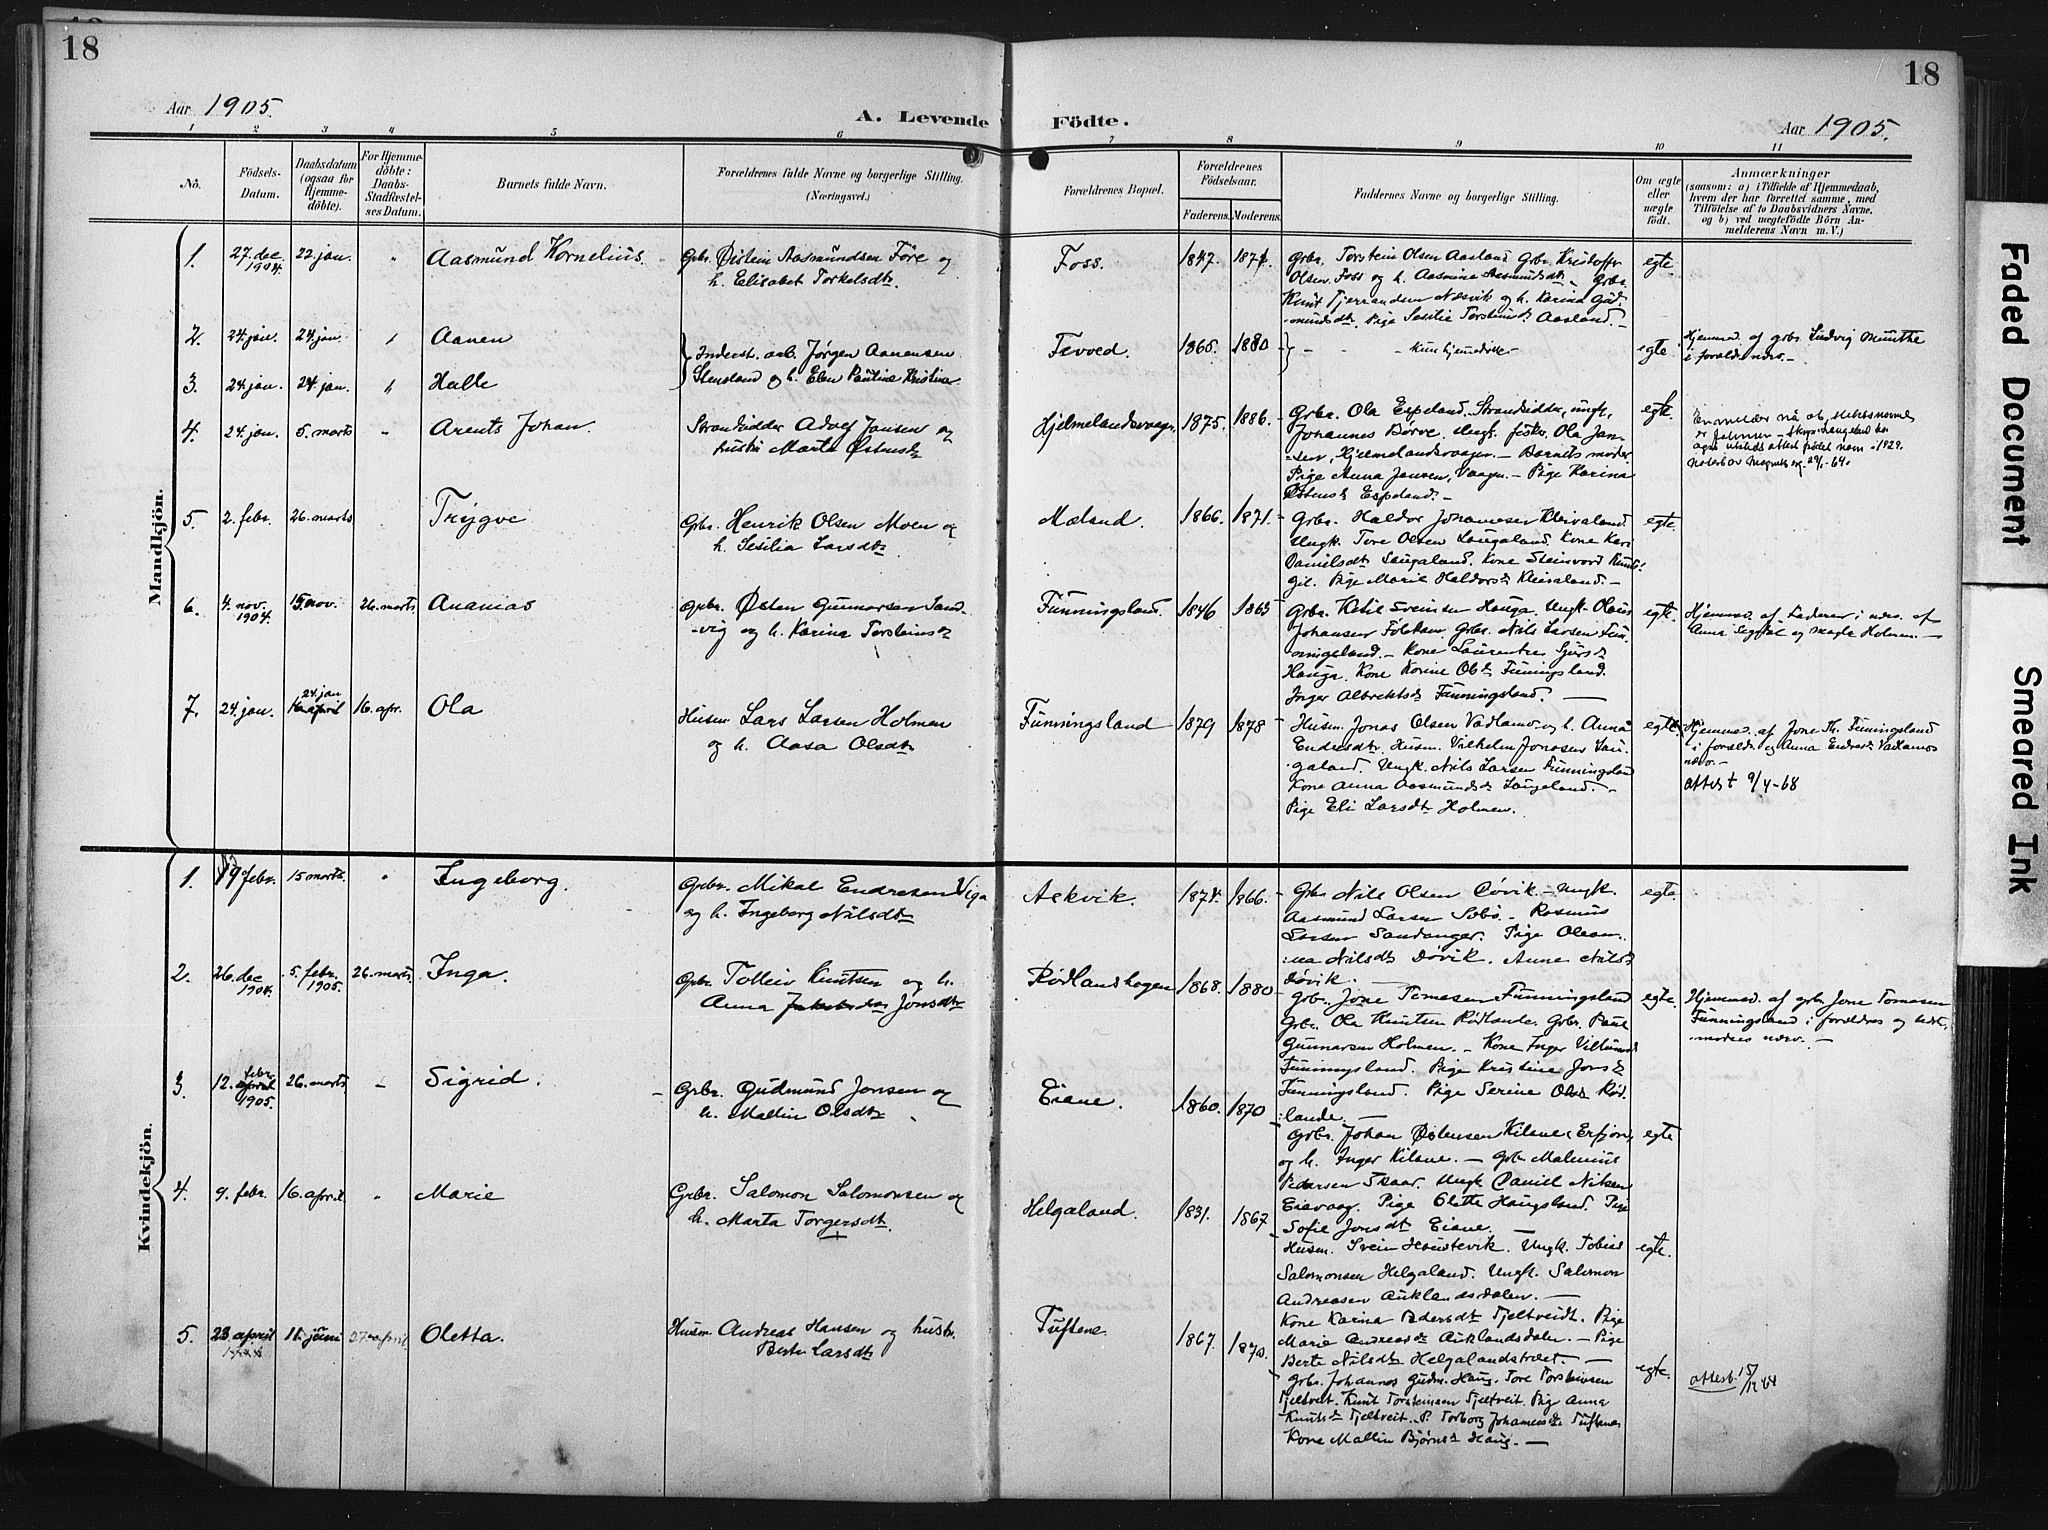 18
18
Aar 1905.
A. Levende Födte.
Aar 1905.
1 2 3 4 5 6 7 8 9 10 11
No.
Födsels-
Datum.
Daabsdatum
(ogsaa for
Hjemme-
döbte).
For Hjemme-
döbte:
Daabs-
Stadfæstel-
ses Datum.
Barnets fulde Navn.
Forældrenes fulde Navne og borgerlige Stilling.
(Næringsvei.)
Forældrenes Bopæl.
Forældrenes
Födselsaar.
Faderens. Moderens.
Faddernes Navne og borgerlige Stilling.
Om ægte
eller
uægte
födt.
Anmærkninger
(saasom: a) i Tilfælde af Hjemmedaab,
hvem der har forrettet samme, med
Tilföielse af to Daabsvidners Navne,
og b) ved uægtefödte Börn An-
melderens Navn m. V.)
Mandkjön.
1. 27. dec. 1904. 22. jan. " Aasmund Kornelius. Gbr. Østein AasmundsenFøre og
h. Elisabet Torkelsdtr.
Foss. 1847. 1871. Grbr. Torstein Olsen Aasland Grbr. Kristoffer
Olsen Foss og h. Aasmine Aasmundsdtr. Grbr.
Knut Tjerrandsen Næsvik og h. Karina Gud-
mundsdtr. Pige Sesilie Torsteinsd. Aasland. –
egte
2. 24. jan. 24. jan. " Aanen
Inderst. arb. Jørgen Aanensen
Stensland og h. Elen Pauline Kristine
Tevoed. 1865. 1880 - - - kun hjemdøbt - egte
Hjemmed. af grbr. Ludvig Munthe
i forældr. nærv. –
3. 24. jan. 24. jan. " Halle
4. 24. jan. 5. marts " Arents Johan. Strandsidder Adolf Jansen og
hustru Marta Østensdtr
Hjelmelandsvaagen. 1875. 1886. Grbr. Ola Espeland. Strandsidder, ungk.
Johannes Børve. Ungk. fisker Ola Jan-
-sen, Hjelmelandsvaagen. – Barnets moder
Pige Anna Jansen, Vaagen. – Pige Karina
Østensd. Espeland. –
egte
5. 2. febr. 26. marts Trygve Grbr. Henrik Olsen Moen og
h. Sesilia Larsdtr.
Mæland. 1866. 1871. Grbr. Haldor Johannesen Kleivaland.
Ungk. Tore Olsen Laugaland. Kone Kari
Danielsdtr Laugaland. Kone Steinvord Knuts-
gil. Pige Marie Haldorsd. Kleivaland. –
egte
6. 4. nov. 1904. 15. nov. 26. marts Ananias Grbr. Østen Gunnarsen Sand-
-vig og h. Karina Torsteinsd
Funningsland. 1846 1865 Grbr. Ketil Sveinsen Hauga. Ungk. Olaus
Johansen Foletun. Grbr. Nils Larsen Fun-
ningsland. – Kone Laurentse Sjursd
Hauga. Kone Korine Olsd. Funningsland.
Inger Albrektsd. Funningsland. –
egte.
Hjemmed. af Faderen i nærv. af
Anna og Magla Holmen. –
7. 24. jan. 24. jan 16. april 16. apr. Ola Husm. Lars Larsen Holmen
og h. Aasa Olsdtr.
Funningsland 1879 1878 Husm. Jonas Olsen Vadlamo og h. Anna
Endresdtr. Husm. Vilhelm Jonasen Lau-
galand. Ungk. Nils Larsen Funningsland
Kone Anna Aasmundsd Laugeland. –
Pige Eli Larsdtr. Holmen.
egte
Hjemmed. af Jone Th. Funningsland
i forældr. og Anna Endresd. Vadlamos
nærv. –
attest 9/4-68
Kvindekjön.
1. 19 febr. 15 marts. " Ingeborg. Grbr. Mikal Endresen Viga
og h. Ingeborg Nilsdtr.
Askvik. 1874. 1866. Grbr Nils Olsen Døvik. – Ungk.
Aasmund Larsen Sobø. – Rasmus
Larsen Sandanger. Pige Olean-
na Nilsdtr Døvik. Anne Nilsd
Døvik. –
egte.
2. 26. dec 1904. 5. febr. 1905. 26. marts. Inga. Grbr. Tollev Knutsen og h.
Anna Jonsdtr
Rødlandshagen 1868. 1880 Grbr. Jone Tomasen Funningsland
Grbr. Ola Knutsen Rødlande. Grbr. Paul
Gunnarsen Holmen. – Kone Inger Villumsd
Funningsland. Pige Kristine Jonsd
Funningsland. Pige Serine Olsd Rød-
lande. –
egte.
Hjemmed. af grbr. Jone Tomasen
Funningsland i forældres og
mores nærv. –
3. 12. febr april 1905. 26. marts. – Sigrid. Grbr. Gudmund Jonsen og
h. Mallin Olsdtr.
Eiane. 1860. 1870 Grbr. Johan Østensen Kilane, Erfjord,
og h. Inger Kilane. – Grbr. Malenius
Pedersen Skaar. Ungk Daniel Nilsen
Eiavaag. Pige Olette Haugsland. Pige
Sofie Jonsdtr Eiane. –
egte
4. 9. febr. 16. april " Marie Grbr. Salomon Salomonsen og
h. Marta Torgersdtr.
Helgaland. 1831. 1867 Husm. Svein Haustevik. Ungk. Tobias
Salomonsen Helgaland. Ungk. Salomon
Andreasen Auklandsdalen. –
Kone Karina Pedersdtr Tjeltveidt. Pige
Marie Andreasdtr Auklandsdalen. – Pige
Berte Nilsdtr Helgalandstræet. –
egte.
5. 23 april 11. juni 27. april Oletta. Husm. Andreas Hansen og hustr.
Berte Larsdtr
Tuftene 1867. 1870. Grbr. Johannes Gudm. Haug. Tore Torsteinsen
Tjeltveit. Knut Torsteinsen Tjeltveit. Pige Anna
Knutsdr Tjeltveit. P. Torborg Johannesd. Tuftenes
Kone Mallin Bjørnsd. Haug. –
egte.
attest. 15/12 64
Faded Document
Smeared Ink